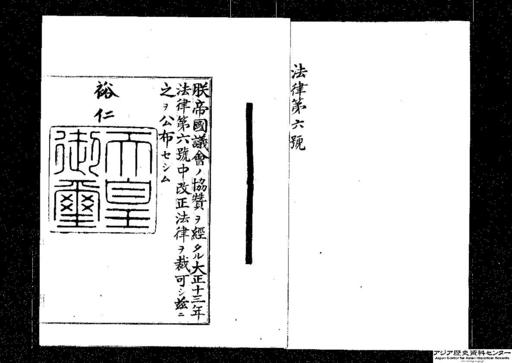 法律第六號
朕帝國議會ノ協贊ヲ經タル大正十三年
法律第六號中改正法律ヲ裁可シ茲ニ
之ヲ公布セシム
裕仁
天皇
御璽
アジア歴史資料センター
Japan Center for Asian Historical Records